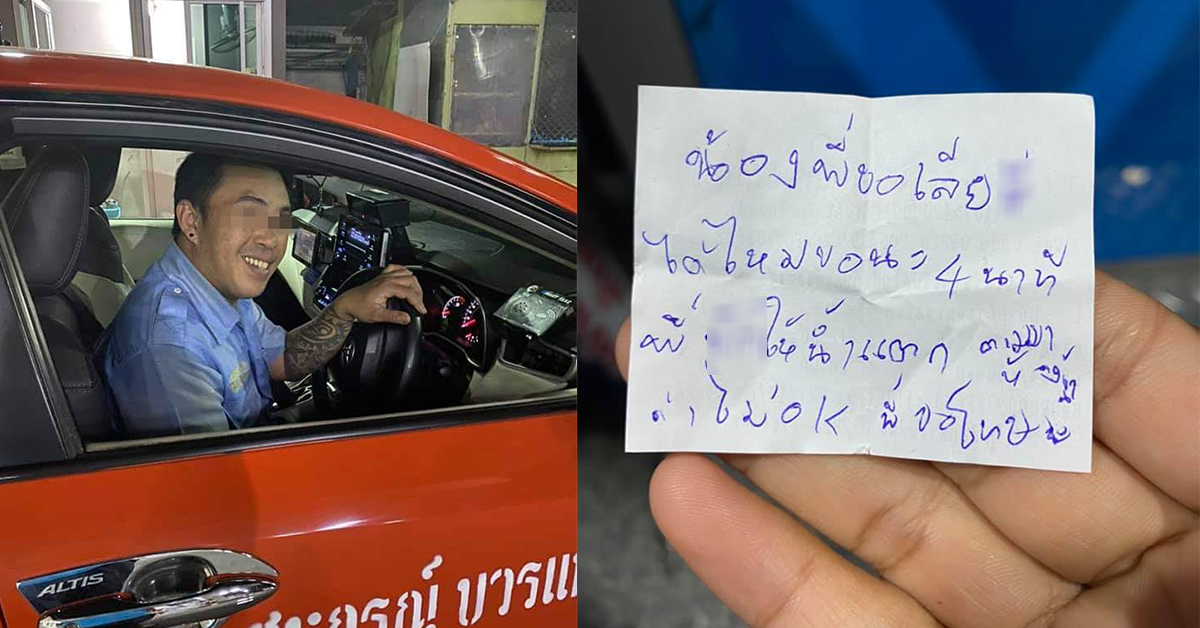 ALTIS
สหกรณ์ บวรแท
น้องพี่ขอเลีย
ได้ไหมขอนะ 4 นาที
พี่ ให้น้ำแตก ตามมา
ที่
ถ้าไม่ OK พี่ขอโทษ